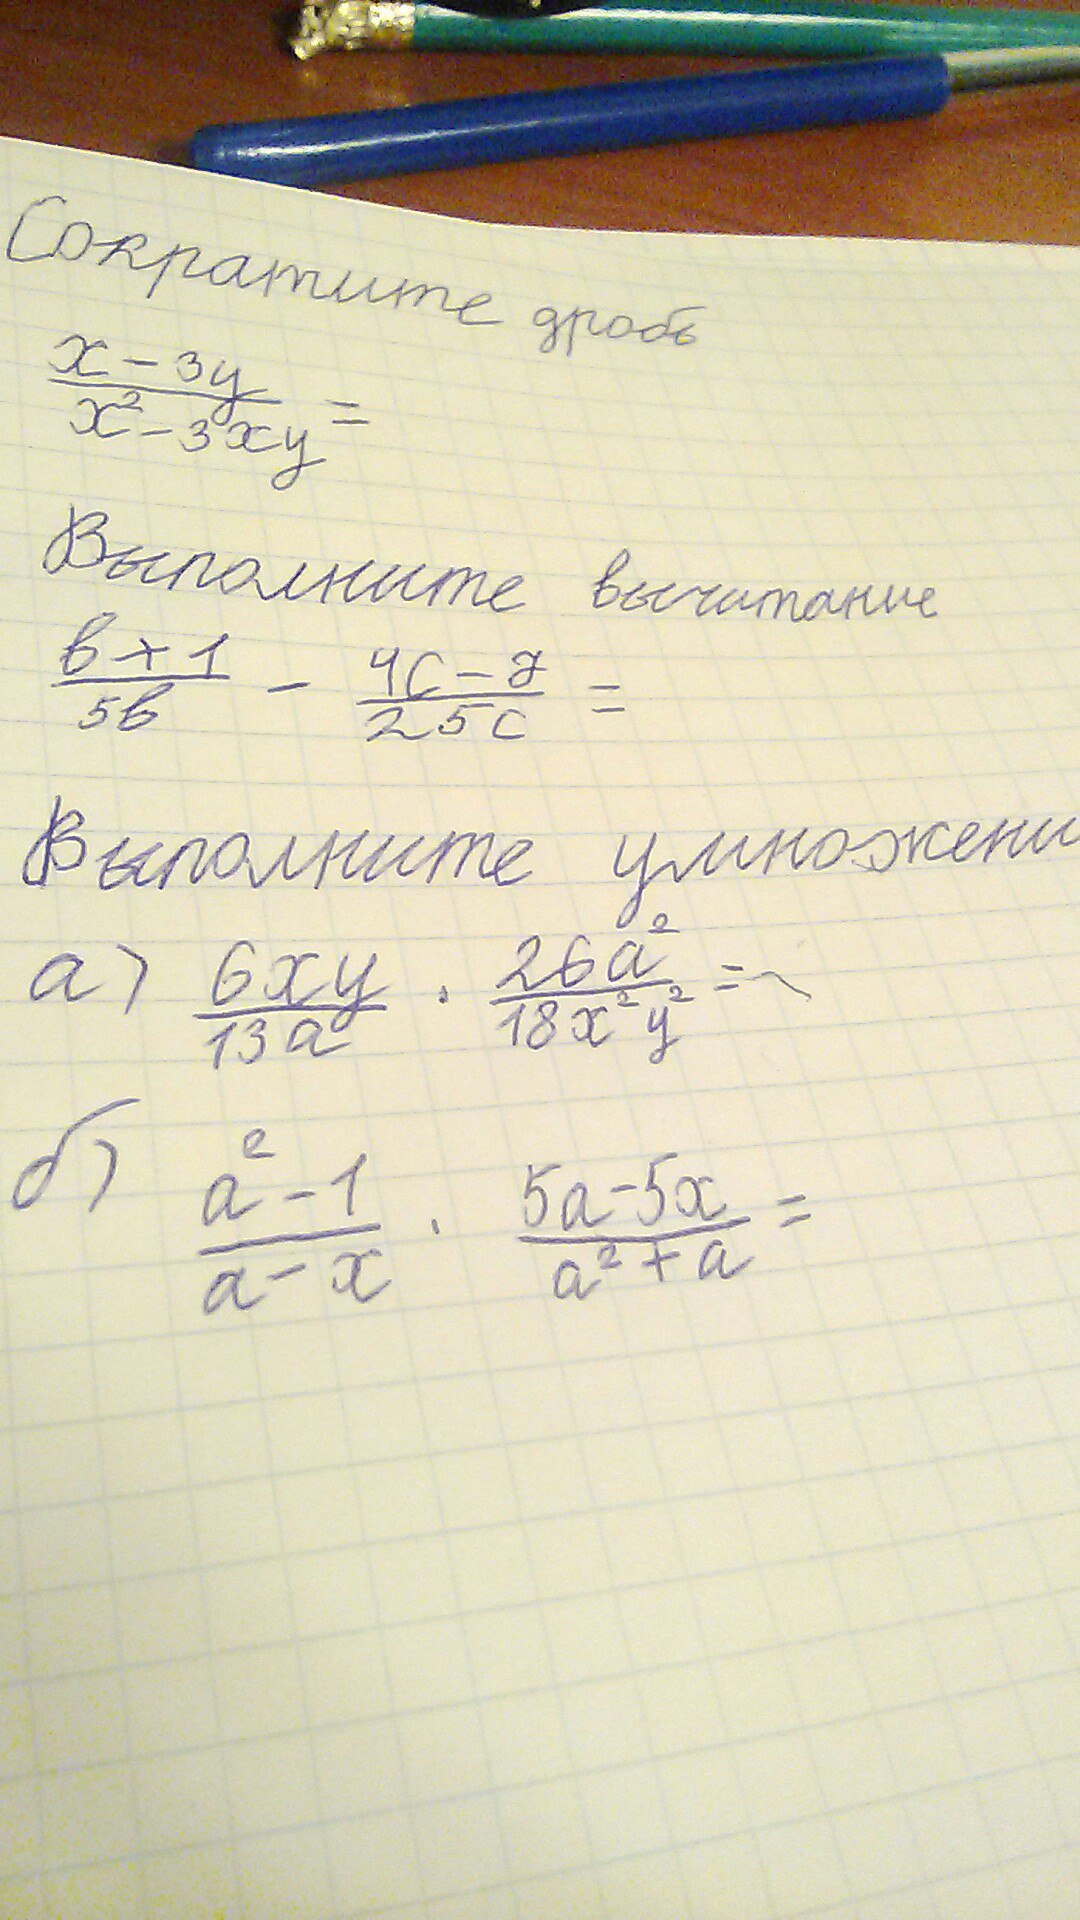 Сократите дробь
x - 3y
x² - 3xy =
Выполните вычитание
в + 1 / 5в - 4с - 7 / 25с =
Выполните умножени
а) 6xy / 13a · 26a² / 18x²y² =
б) a² - 1 / a - x · 5a - 5x / a² + a =